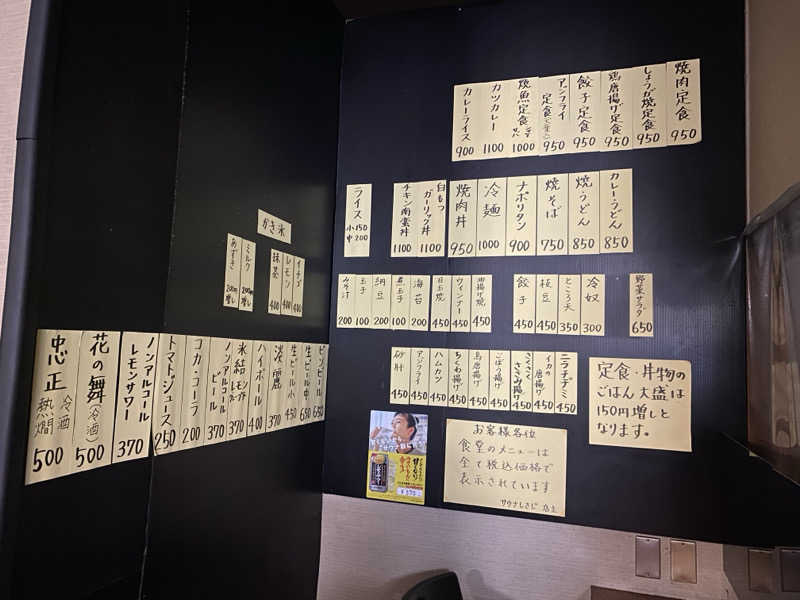 焼肉定食 950
しょうが焼定食 950
鶏唐揚げ定食 950
餃子定食 950
アジフライ定食 950
焼魚定食 1000
カツカレー 1100
カレーライス 900
カレーうどん 850
焼うどん 850
焼そば 750
ナポリタン 900
冷麺 1000
焼肉丼 950
白もつガーリック丼 1100
チキン南蛮丼 1100
ライス 小150 中200
野菜サラダ 650
冷奴 300
ところ天 350
枝豆 450
餃子 450
油揚げ焼 450
ウィンナー 450
目玉焼 450
海苔 200
煮玉子 100
納豆 200
玉子 100
みそ汁 200
ニラチヂミ 450
イカの唐揚げ 450
さくさくささみ揚げ 450
ごぼう揚げ 450
鳥唐揚げ 450
ちくわ揚げ 450
ハムカツ 450
アジフライ 450
砂肝 450
定食・丼物の
ごはん大盛は
150円増しと
なります。
お客様各位
食堂のメニューは
全て税込価格で
表示されています
サウナしきじ 店主
¥370
かき氷
イチゴ 400
レモン 400
抹茶 400
ミルク 200円増し
あずき 200円増し
ビンビール 650
生ビール中 650
生ビール小 450
淡麗 370
ハイボール 400
氷結 レモン ライト 370
ノンアルコールビール 370
コカ・コーラ 200
トマトジュース 250
ノンアルコールレモンサワー 370
花の舞(冷酒) 500
忠正 冷酒 熱燗 500